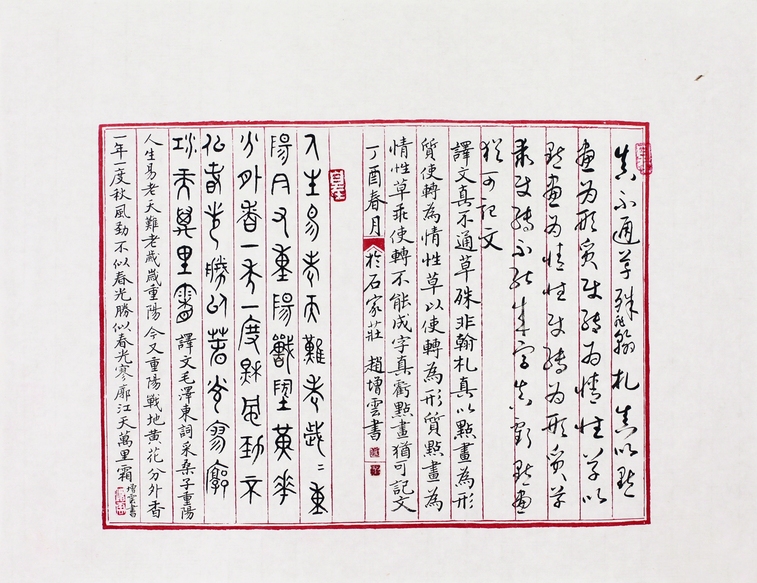 真不通草殊非翰札真以點
畫為形質使轉為情性草以
點畫為情性使轉為形質草
乖使轉不能成字真虧點畫
猶可記文
譯文真不通草殊非翰札真以點畫為形
質使轉為情性草以使轉為形質點畫為
情性草乖使轉不能成字真虧點畫猶可記文
丁酉春月於石家莊 趙增雲書
人生易老天難老歲〻重
陽今又重陽戰地黃花
分外香一年一度秋風勁不
似春光勝似春光寥廓
江天萬里霜 譯文毛澤東詞采桑子重陽
人生易老天難老歲歲重陽今又重陽戰地黄花分外香
一年一度秋風勁不似春光勝似春光寥廓江天萬里霜 增雲書